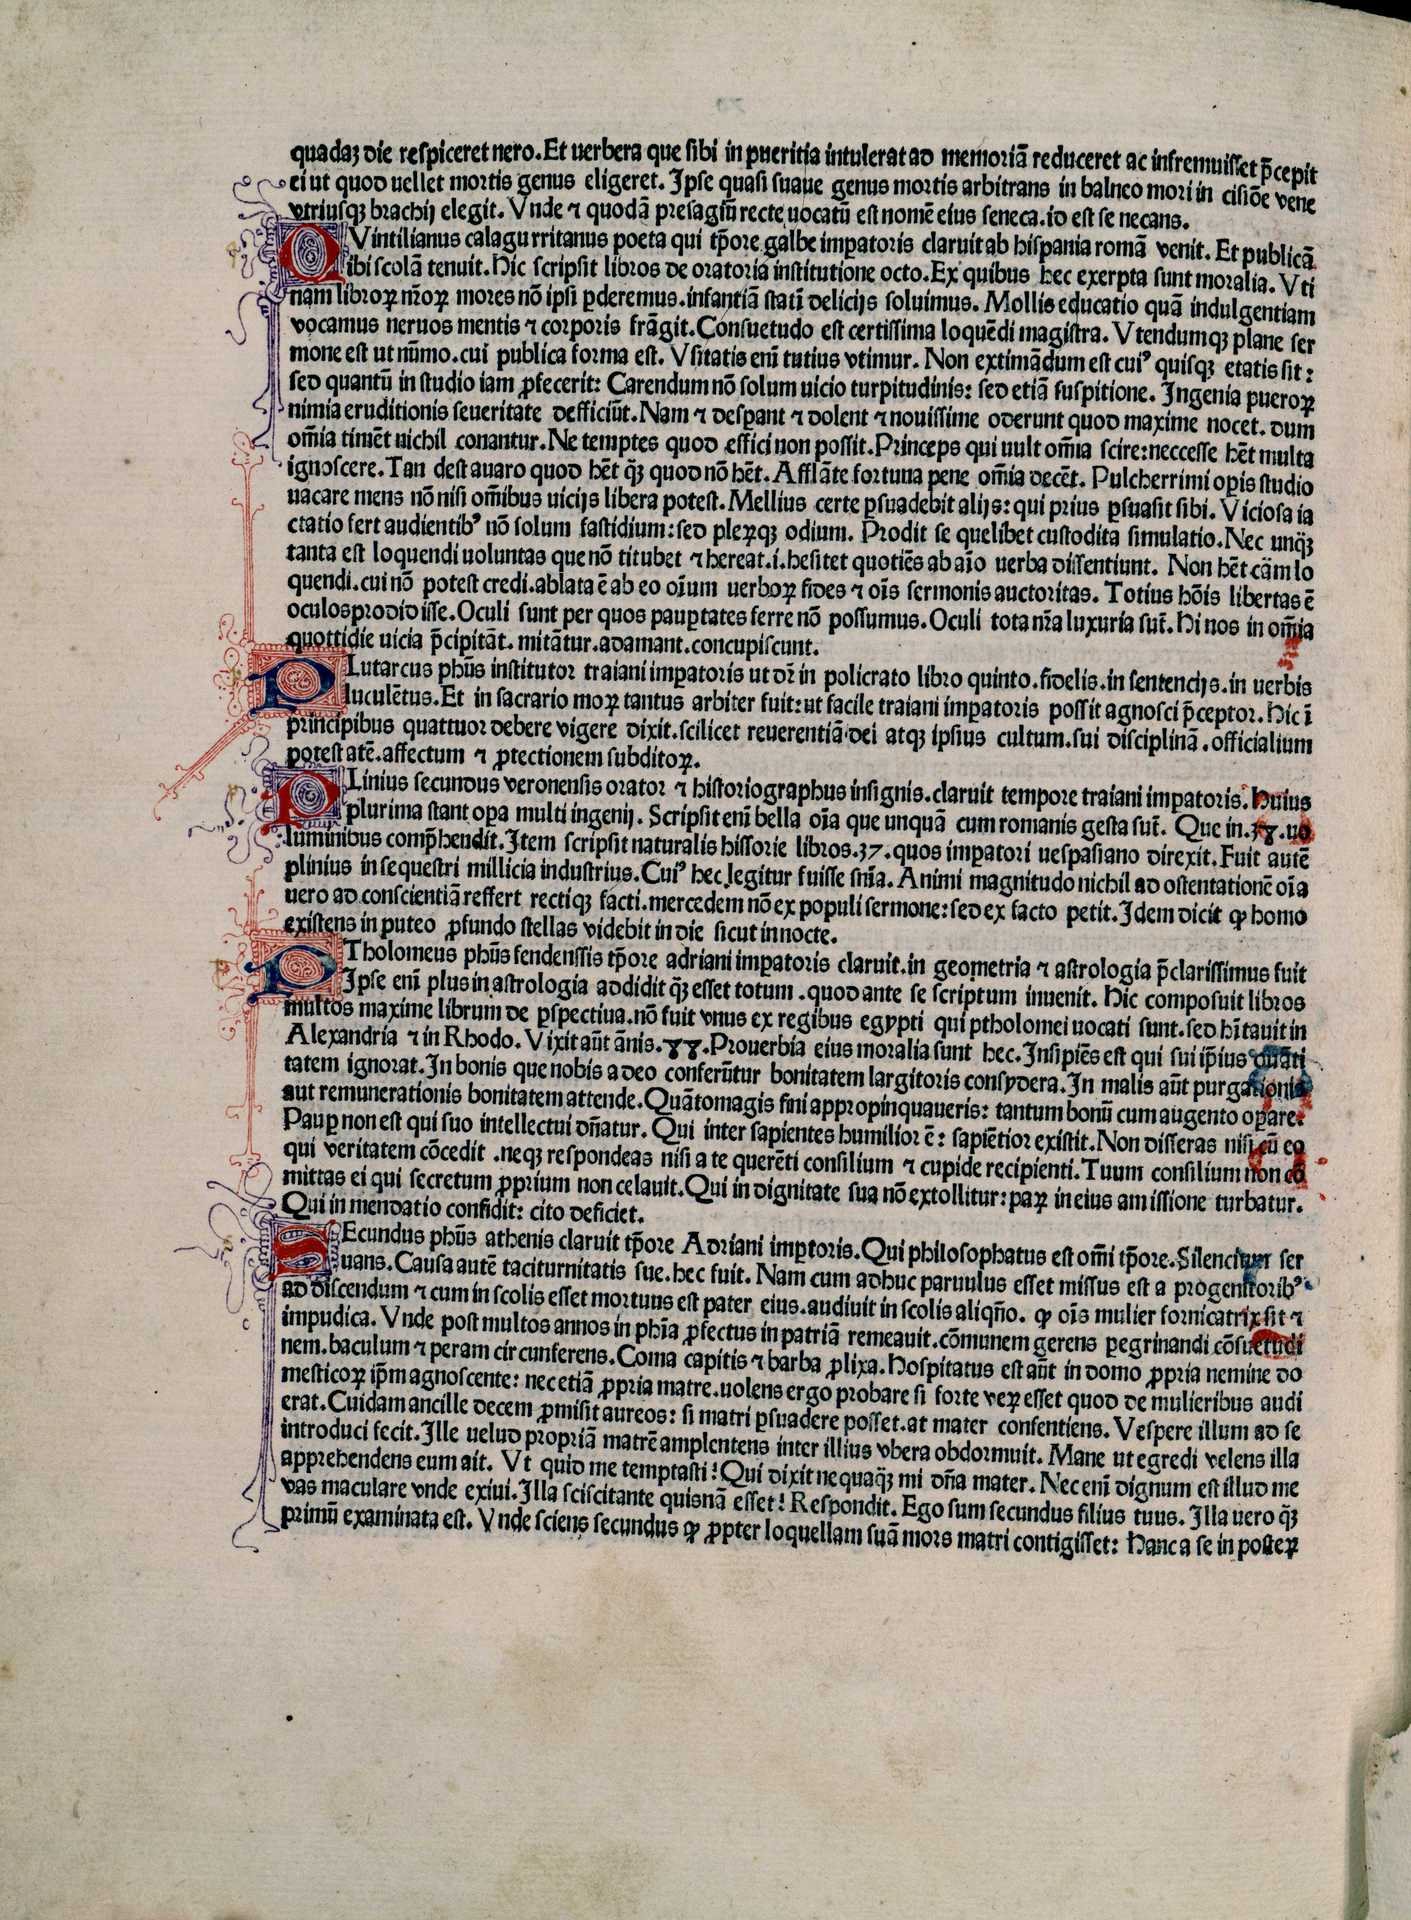 quadaꝫ die respiceret nero. Et uerbera que sibi in pueritia intulerat ad memoriā reduceret ac infremuisset p̄cepit
ei ut quod uellet mortis genus eligeret. Ipse quasi suaue genus mortis arbitrans in balneo mori in cisiōe vene
vtriusqꝫ brachij elegit. Vnde ⁊ quodā presagiū recte uocatū est nomē eius seneca. id est se necans.
QVintilianus calagurritanus poeta qui tp̄ore galbe imꝑatoris claruit ab hisp̄ania romā venit. Et publicā
ibi scolā tenuit. Hic scripsit libros de oratoria institutione octo. Ex quibus hec exerpta sunt moralia. Vti
nam libroꝝ nr̄oꝝ mores nō ipsi ꝑderemus. infantiā statī delicijs soluimus. Mollis educatio quā indulgentiam
vocamus neruos mentis ⁊ corporis frāgit. Consuetudo est certissima loquēdi magistra. Vtendumqꝫ plane ser
mone est ut nūmo. cui publica forma est. Vsitatis enī tutius vtimur. Non extimādum est cuiꝰ quisqꝫ etatis sit:
sed quantū in studio iam ꝓfecerit: Carendum nō solum uicio turpitudinis: sed etiā suspitione. Ingenia pueroꝝ
nimia eruditionis seueritate defficiūt. Nam ⁊ desꝑant ⁊ dolent ⁊ nouissime oderunt quod maxime nocet. dum
om̄ia timēt nichil conantur. Ne temptes quod effici non possit. Princeps qui uult om̄ia scire: neccesse hēt multa
ignoscere. Tan dest auaro quod hēt qꝫ̄ quod nō hēt. Afflāte fortuna pene om̄ia decēt. Pulcherrimi oꝑis studio
uacare mens nō nisi om̄ibus uicijs libera potest. Mellius certe ꝑsuadebit alijs: qui prius ꝑsuasit sibi. Viciosa ia
ctatio fert audientibꝰ nō solum fastidium: sed pleꝝqꝫ odium. Prodit se quelibet custodita simulatio. Nec unqꝫ̄
tanta est loquendi uoluntas que nō titubet ⁊ hereat. i. hesitet quotiēs ab aīo uerba dissentiunt. Non hēt cām lo
quendi. cui nō potest credi. ablata ē ab eo oīum uerboꝝ fides ⁊ oīs sermonis auctoritas. Totius hōis libertas ē
oculos prodidisse. Oculi sunt per quos pauꝑtates ferre nō possumus. Oculi tota nr̄a luxuria sūt. Hi nos in om̄ia
quottidie uicia p̄cipitāt. mitātur. adamant. concupiscunt.
PLutarcus ph̄us institutor traiani imꝑatoris ut dr̄ in policrato libro quinto. fidelis. in sentencijs. in uerbis
luculētus. Et in sacrario moꝝ tantus arbiter fuit: ut facile traiani imꝑatoris possit agnosci p̄ceptor. Hic ī
principibus quattuor debere vigere dixit. scilicet reuerentiā dei atqꝫ ipsius cultum. sui disciplinā. officialium
potestatē. affectum ⁊ ꝓtectionem subditoꝝ.
PLinius secundus veronensis orator ⁊ historiographus insignis. claruit tempore traiani imꝑatoris. Huius
plurima stant oꝑa multi ingenij. Scripsit enī bella oīa que unquā cum romanis gesta sūt. Que in. 38. uo
luminibus comp̄hendit. Item scripsit naturalis hissorie libros. 37. quos imꝑatori uespasiano direxit. Fuit autē
plinius in sequestri millicia industrius. Cuiꝰ hec legitur fuisse snīa. Animi magnitudo nichil ad ostentationē oīa
uero ad conscientiā reffert rectiqꝫ facti. mercedem nō ex populi sermone: sed ex facto petit. Idem dicit ꝙ homo
existens in puteo ꝓfundo stellas videbit in die sicut in nocte.
PTholomeus ph̄us fendenssis tp̄ore adriani imꝑatoris claruit. in geometria ⁊ astrologia p̄clarissimus fuit
Ipse enī plus in astrologia addidit qꝫ̄ esset totum. quod ante se scriptum inuenit. Hic composuit libros
multos maxime librum de ꝑspectiua. nō fuit vnus ex regibus egypti qui ptholomei uocati sunt. sed hītauit in
Alexandria ⁊ in Rhodo. Vixit aūt ānis. 88. Prouerbia eius moralia sunt hec. Insipiēs est qui sui ip̄ius quāti
tatem ignorat. In bonis que nobis adeo conferūtur bonitatem largitoris consydera. In malis aūt purgationis
aut remunerationis bonitatem attende. Quātomagis fini appropinquaueris: tantum bonū cum augento oꝑare:
Pauꝑ non est qui suo intellectui dn̄atur. Qui inter sapientes humilior ē: sapiētior existit. Non disseras nisi cū eo
qui veritatem cōcedit. neqꝫ respondeas nisi a te querēti consilium ⁊ cupide recipienti. Tuum consilium non co
mittas ei qui secretum ꝓprium non celauit. Qui in dignitate sua nō extollitur: paꝝ in eius amissione turbatur.
Qui in mendatio confidit: cito deficiet.
SEcundus ph̄us athenis claruit tp̄ore Adriani imꝑtoris. Qui philosophatus est om̄i tp̄ore. Silencium ser
uans. Causa autē taciturnitatis sue. hec fuit. Nam cum adhuc paruulus esset missus est a progenitoribꝰ
ad discendum ⁊ cum in scolis esset mortuus est pater eius. audiuit in scolis aliqn̄o. ꝙ oīs mulier fornicatrix sit ⁊
impudica. Vnde post multos annos in ph̄ia ꝓfectus in patriā remeauit. cōmunem gerens ꝑegrinandi cōsuetudi
nem. baculum ⁊ peram circunferens. Coma capitis ⁊ barba ꝓlixa. Hospitatus est aūt in domo ꝓpria nemine do
mesticoꝝ ip̄m agnoscente: nec etiā ꝓpria matre. uolens ergo probare si forte veꝝ esset quod de mulieribus audi
erat. Cuidam ancille decem ꝓmisit aureos: si matri ꝑsuadere posset. at mater consentiens. Vespere illum ad se
introduci fecit. Ille uelud propriā matrē amplentens inter illius vbera obdormuit. Mane ut egredi velens illa
apprehendens eum ait. Vt quid me temptasti? Qui dixit nequaqꝫ̄ mi dn̄a mater. Nec enī dignum est illud me
vas maculare vnde exiui. Illa sciscitante quisnā esset? Respondit. Ego sum secundus filius tuus. Illa uero qꝫ̄
primū examinata est. Vnde sciens secundus ꝙ ꝓpter loquellam suā mors matri contigisset: Hanc a se in posteꝝ